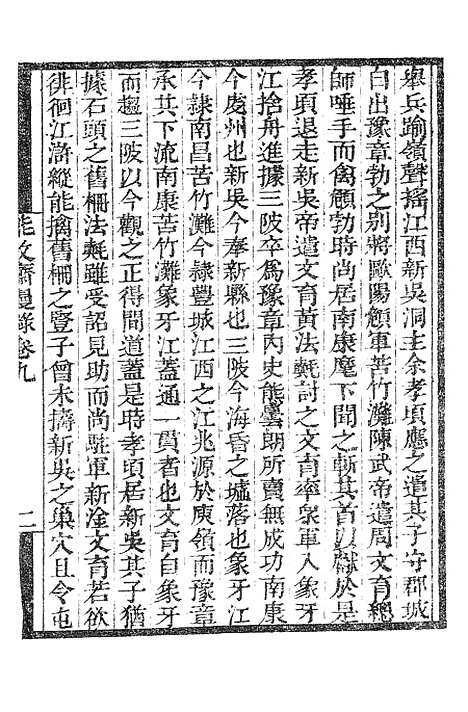 舉兵踰嶺聲搖江西新吳洞主余孝頃應之遣其子守郡城
自出豫章勃之别將歐陽頠軍苦竹灘陳武帝遣周文育總
師唾手而禽頠勃時尚居南康麾下聞之斬其首以獻於是
孝頃退走新吳帝遣文育黃法𣰋討之文育率衆軍入象牙
江捨舟進據三陂卒爲豫章内史熊曇朗所賣無成功南康
今虔州也新吳今奉新縣也三陂今海昏之墟落也象牙江
今隷南昌苦竹灘今隷豐城江西之江兆源於庾領而豫章
承其下流南康苦竹灘象牙江蓋通一貫者也文育自象牙
而趨三陂以今觀之正得間道蓋是時孝頃居新吳其子猶
據石頭之舊柵法𣰋雖受詔見助而尚駐軍新淦文育若欲
徘徊江滸縱能擒舊柵之豎子曾未擣新吳之巢穴且令屯
能改齋漫錄卷九
二